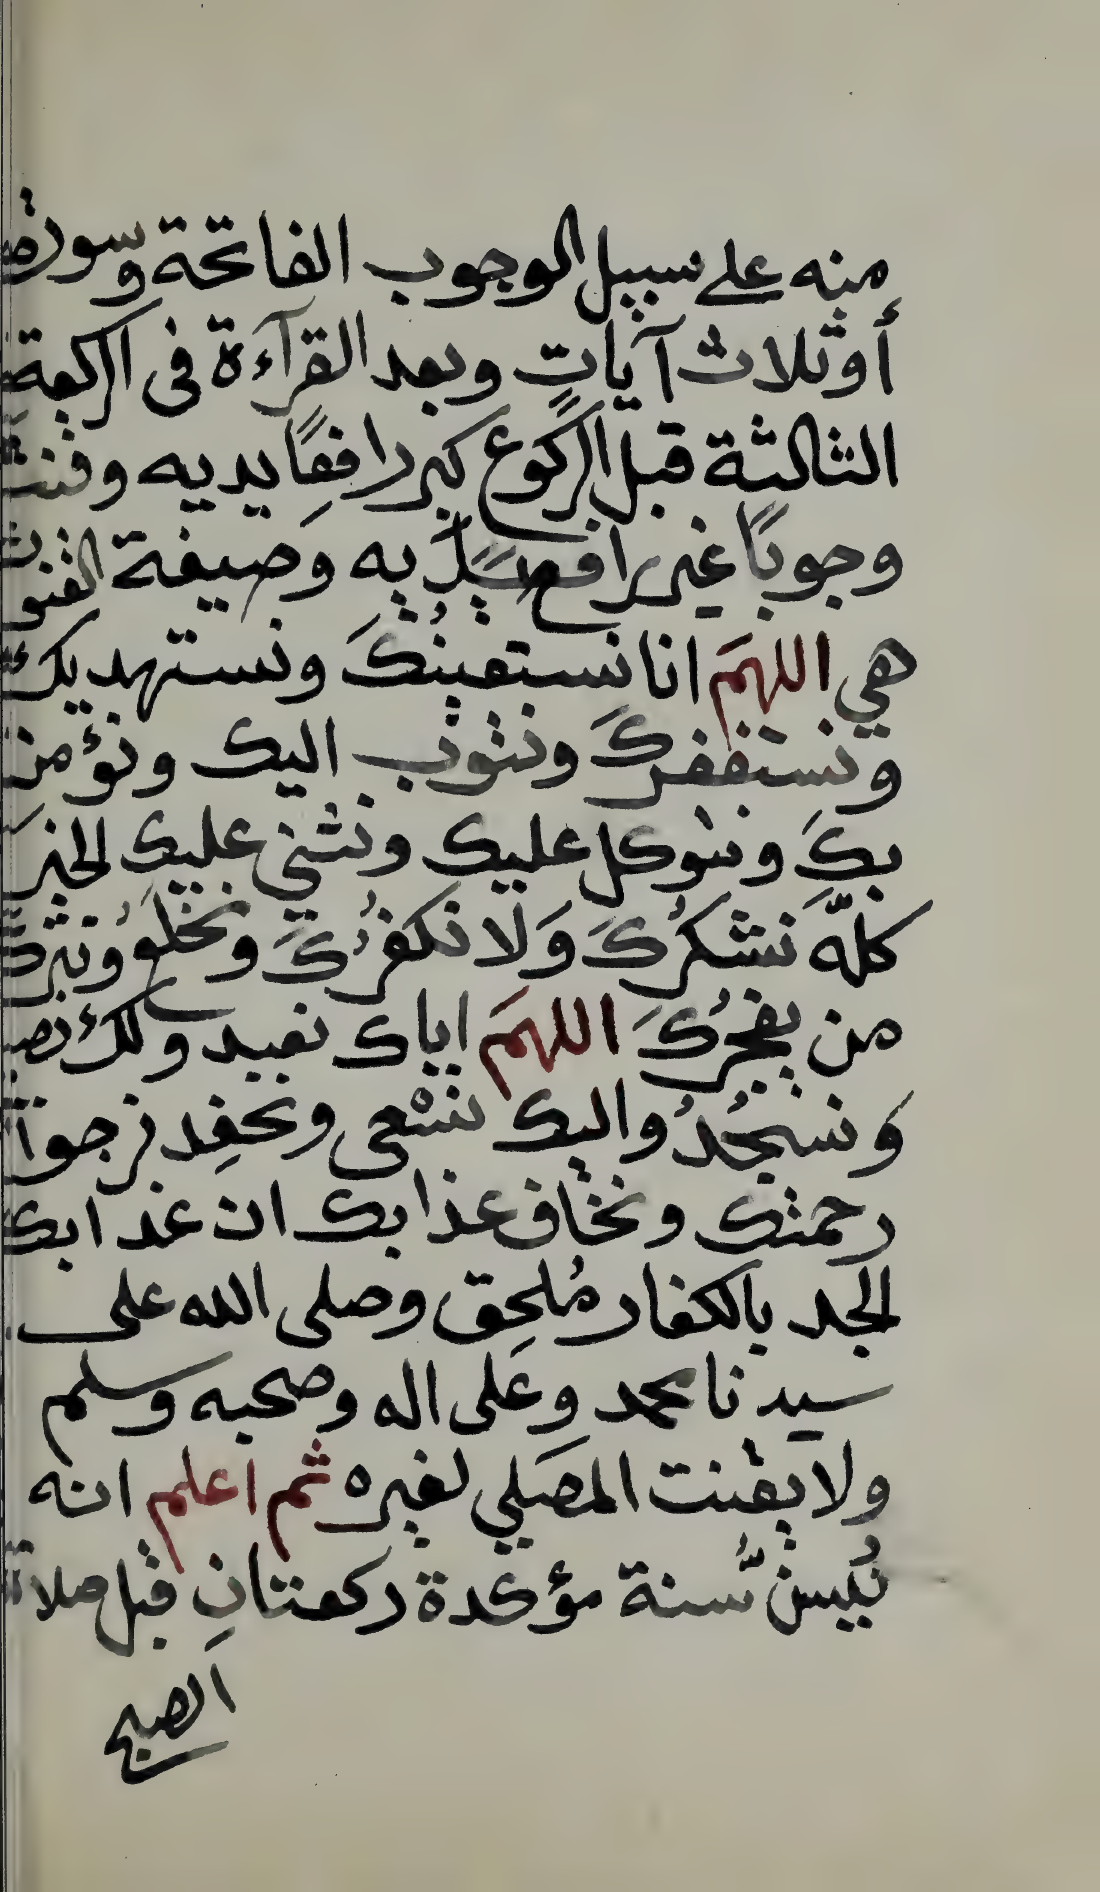 منه على سبيل الوجوب الفاتحة وسورة
أوثلاث آياتٍ وبعد القرآءة فى الركعة
الثالثة قبل الركوع كبر رافعًا يديه وقنت
وجوبًا غير رافع يديه وصيغة القنوت
هي اللهمَ انا نستعينُكَ ونستهديك
ونستغفركَ ونتوب اليك ونؤمن
بكَ ونتوكل عليك ونثني عليك الخير
كلّه نشكرُكَ وَلا نكفرُكَ ونخلَعُ ونترك
من يفجرُكَ اللهمَ اياك نعبد ولك نصلي
وَنسجُدُ واليك نسْعى ونحفِد نرجوا
رحمتك ونخاف عذابك ان عذابك
الجد بالكفار مُلحِق وصلى الله على
سيدنا محمد وعَلى اله وصحبه وسلم
ولا يقنت المصَلي لغيره ثم اعلم انه
يُسن سُنة مؤكدة ركعتانِ قبل صلاة
الصبح